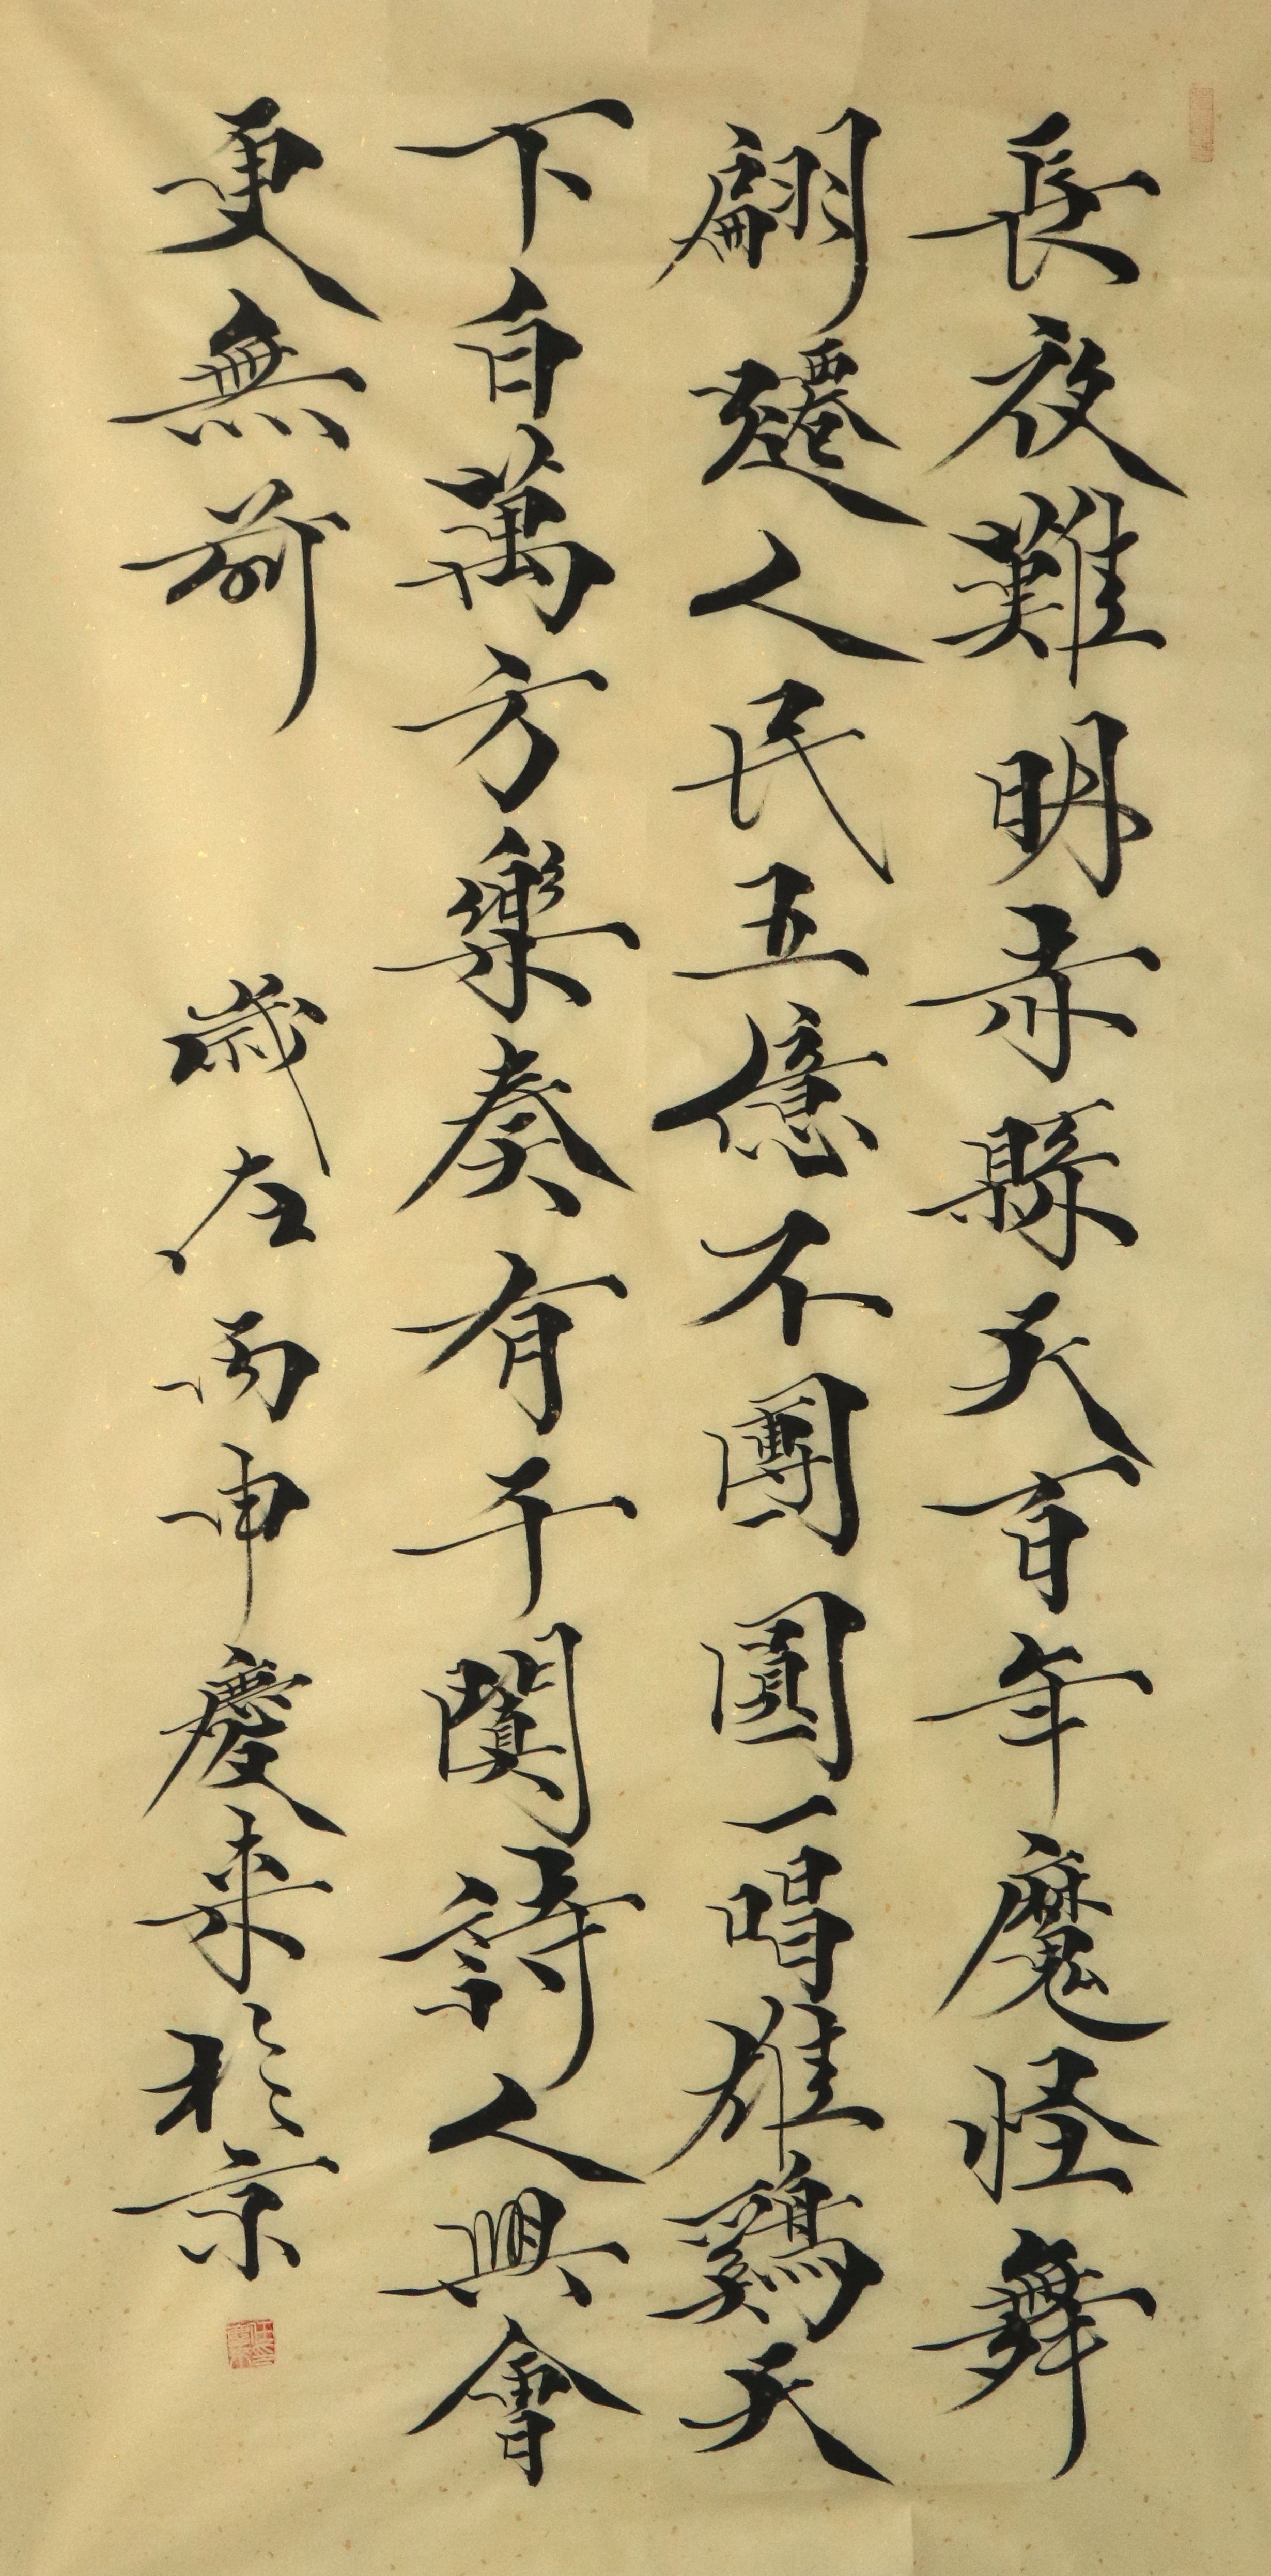 長夜難明赤縣天百年魔怪舞
翩躚人民五億不團圓一唱雄鷄天
下白萬方樂奏有于闐詩人興會
更無前
歲在丙申慶来於京